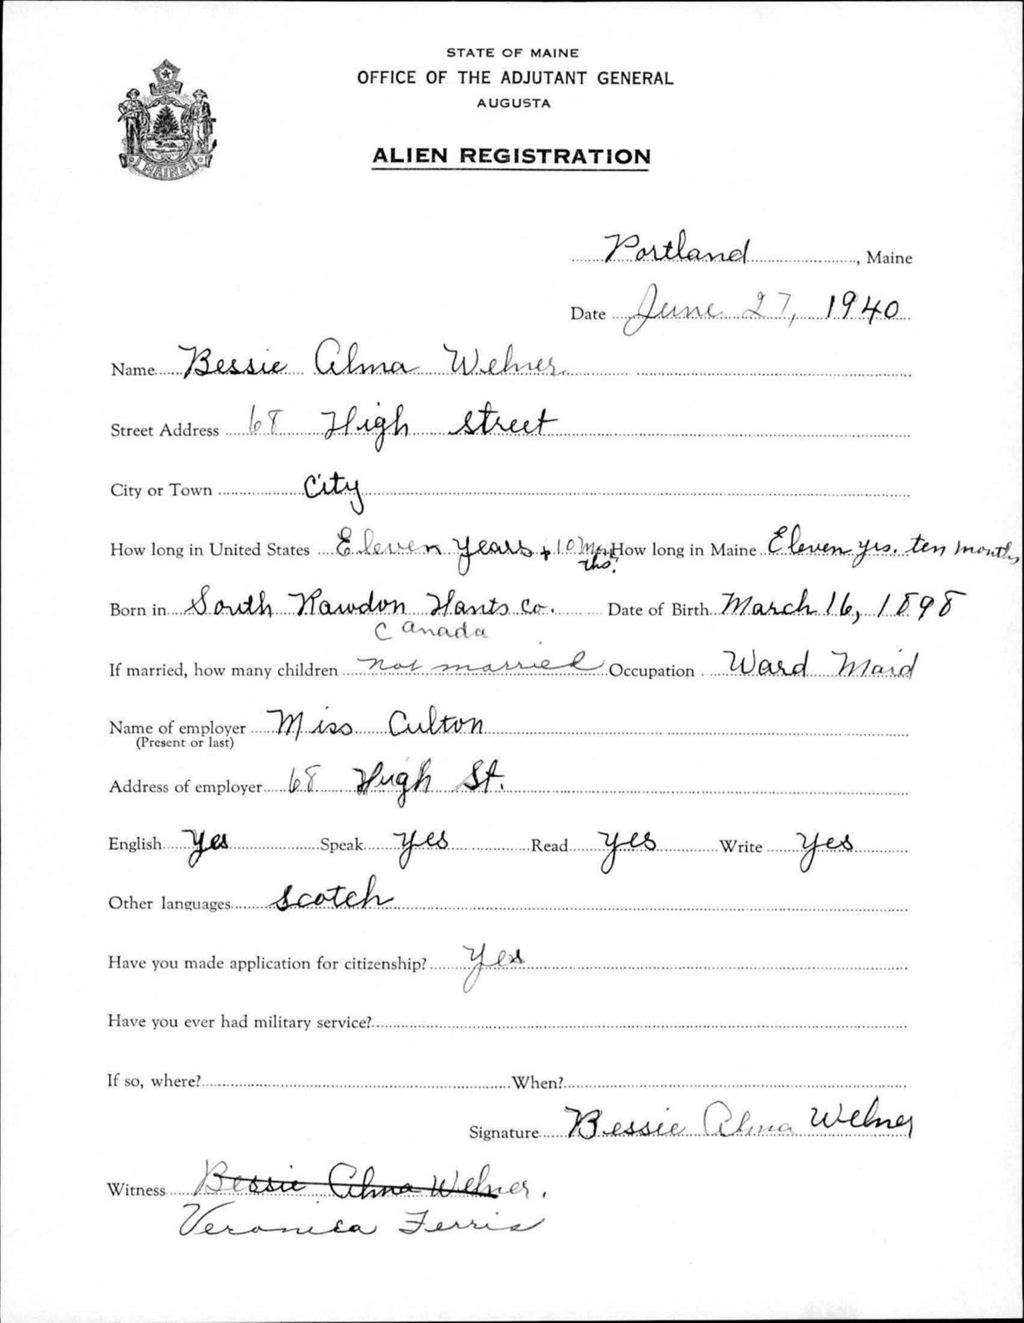 STATE OF MAINE
OFFICE OF THE ADJUTANT GENERAL
AUGUSTA
ALIEN REGISTRATION
MAINE
Portland, Maine
Date June 27, 1940
Name Bessie Alma Welner
Street Address 68 High Street
City or Town City
How long in United States Eleven years + 10 Months. How long in Maine Eleven yrs. ten months
Born in South Rawdon Hants Co. Date of Birth March 16, 1898
Canada
If married, how many children not married Occupation Ward Maid
Name of employer Miss Culton
(Present or last)
Address of employer 68 High St.
English Yes Speak Yes Read Yes Write Yes
Other languages Scotch
Have you made application for citizenship? Yes
Have you ever had military service?
If so, where? When?
Signature Bessie Alma Welner
Witness Bessie Alma Welner.
Veronica Ferris